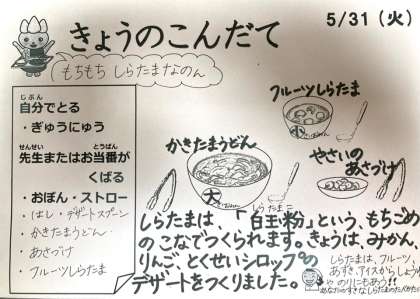 5/31（火）
きょうのこんだて
もちもち しらたまなのん
じぶん
自分でとる
・ぎゅうにゅう
せんせい とうばん
先生またはお当番が
くばる
・おぼん・ストロー
・はし・デザートスプーン
・かきたまうどん
・あさづけ
・フルーツしらたま
フルーツしらたま
かきたまうどん
大
やさいの
あさづけ
しらたまこ
しらたまは、「白玉粉」という、もちごめ
のこなでつくられます。きょうは、みかん、
りんご、とくせいシロップの
デザートをつくりました。
しらたまは、フルーツ、
あずき、アイスからしょうゆ
や のりにもあう!!